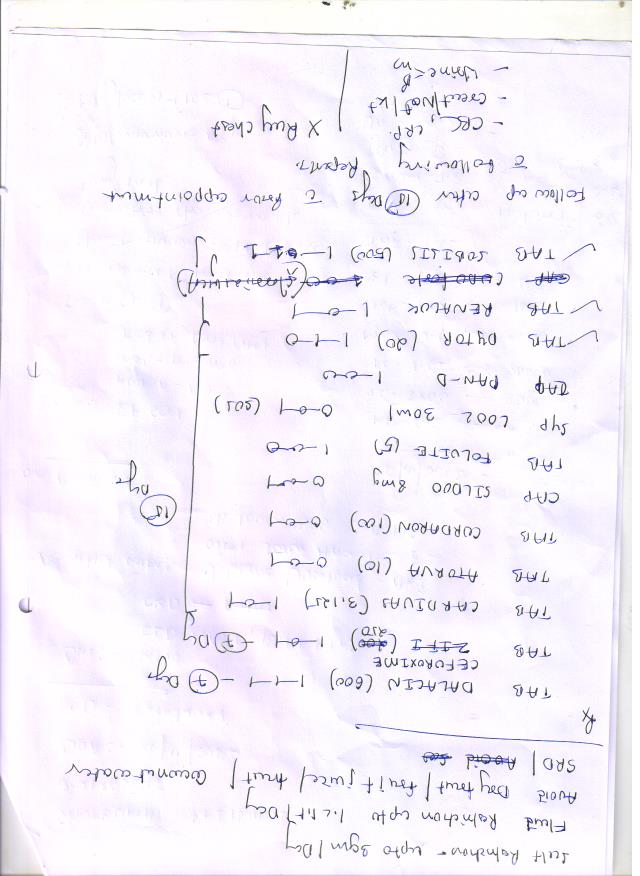 Salt Restriction - upto 3gm/Day
Fluid Restriction upto 1.2 lit/Day
Avoid Dry fruit / Fruit juice / fruit / Coconut water
SRD /
Rx
TAB DALACIN (600) 1-1-1 - 7 Days
CEFUROXIME
TAB ZIFI (200) 250 1-0-1 - 7 Days
TAB CARDIVAS (3.125) 1-0-1
TAB ATORVA (10) 0-0-1
TAB CORDARON (100) 0-0-1
CAP SILDOO 8mg 0-0-1
15 Days
TAB FOLVITE (5) 1-0-0
Syp LOOZ 30ml 0-0-1 (SOS)
TAB PAN-D 1-0-0
TAB DYTOR (20) 1-1-0
TAB RENALUK 1-0-1
CAP
TAB SOBISIS (500) 1-1-1
Follow up after 15 Days c prior appointment
c following Reports.
- CBC, CRP.
X Ray chest
- Creat/Na+/K+
- Urine R M